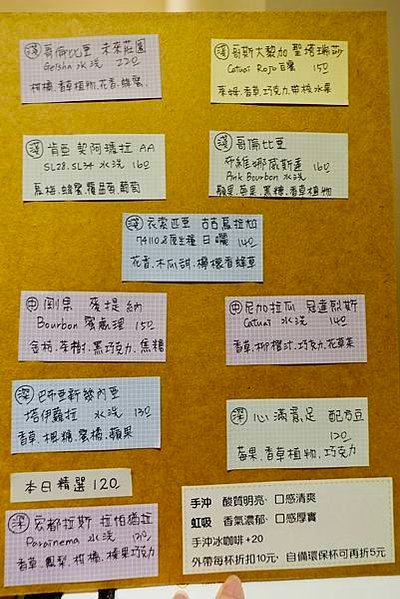 淺 哥倫比亞 未來莊園
Geisha 水洗 220
柑橘、香草植物、花香、蜂蜜
淺 哥斯大黎加 聖塔瑞莎
Catuai Rojo 白蜜 150
萊姆、香草、巧克力、核果
淺 肯亞 契阿瑪拉 AA
SL28.SL34 水洗 160
烏梅、蜂蜜、覆盆莓、葡萄
淺 哥倫比亞
水洗 160
蘋果、莓果、黑糖、香草植物
淺 衣索匹亞
74110&原生種 日曬 140
花香、木瓜甜、檸檬香蜂草
中 剛果
Bourbon 蜜處理 150
黑巧克力、焦糖
中 尼加拉瓜
Catuai 水洗 140
香草、柳橙汁、巧克力、花草茶
深 巴布亞新幾內亞
塔伊蘿拉 水洗 130
香草、楓糖、蜜橘、蘋果
深 心滿意足 配方豆
120
莓果、香草植物、巧克力
本日精選 120
深 宏都拉斯 拉帕猶拉
Parainema 水洗 130
香草、鳳梨、柑橘、榛果巧克力
手沖 酸質明亮、口感清爽
虹吸 香氣濃郁、口感厚實
手沖冰咖啡+20
外帶每杯折扣10元，自備環保杯可再折5元